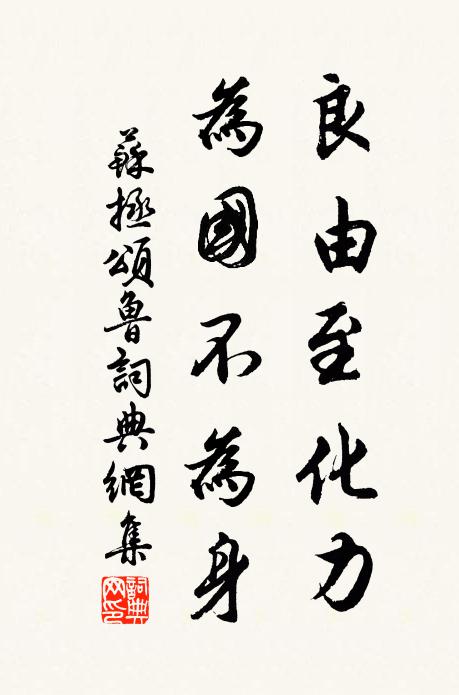 良由至化力
為國不為身
蘇拯頌魯詞典網集
詞典网印